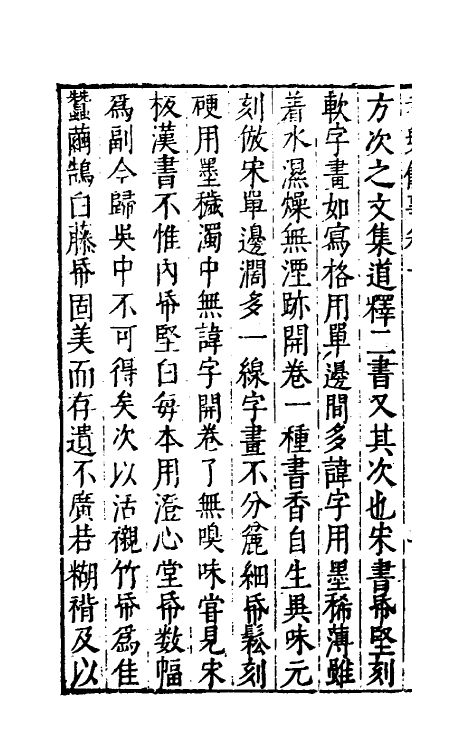 方次之文集道釋二書又其次也宋書帋堅刻
軟字畫如寫格用單邊間多諱字用墨稀薄雖
着水濕燥無湮跡開卷一種書香自生異味元
刻倣宋單邊濶多一線字畫不分麄細帋鬆刻
硬用墨穢濁中無諱字開卷了無嗅味甞見宋
板漢書不惟內帋堅白每本用澄心堂帋数幅
爲副今歸吳中不可得矣次以沽襯竹帋爲佳
蠶繭鵠白藤帋固美而存遺不廣若糊褙及以